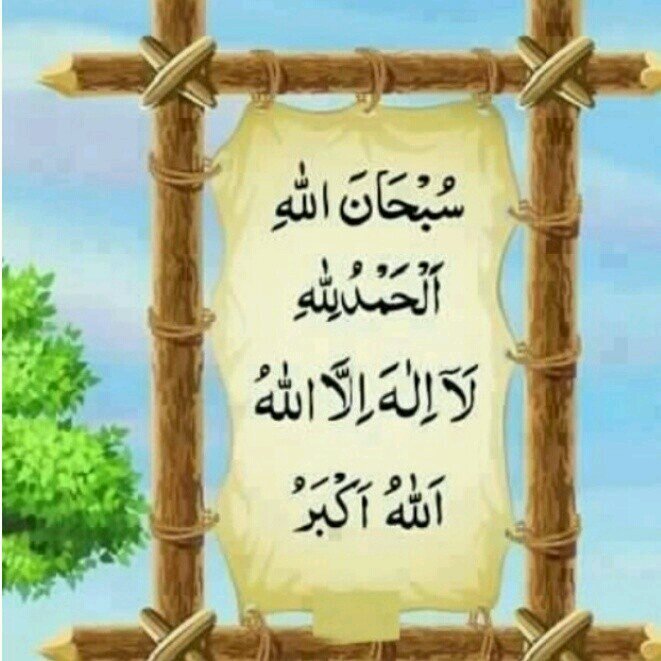 سُبْحَانَ اللّٰهِ
اَلْحَمْدُلِلّٰهِ
لَآ اِلٰهَ اِلَّا اللّٰهُ
اَللّٰهُ اَكْبَرُ